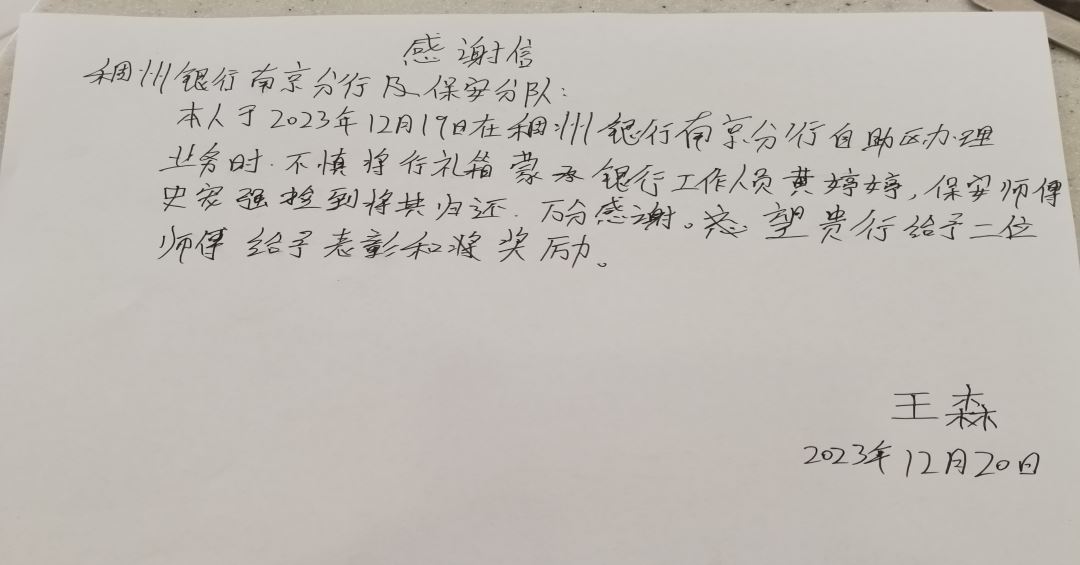 感谢信
稠州银行南京分行及保安分队:
本人于2023年12月19日在稠州银行南京分行自助区办理
业务时.不慎将行礼箱蒙承银行工作人员黄婷婷,保安师傅
史宏强捡到将其归还.万分感谢。恳望贵行给予二位
师傅给予表彰和将奖励。
王森
2023年12月20日